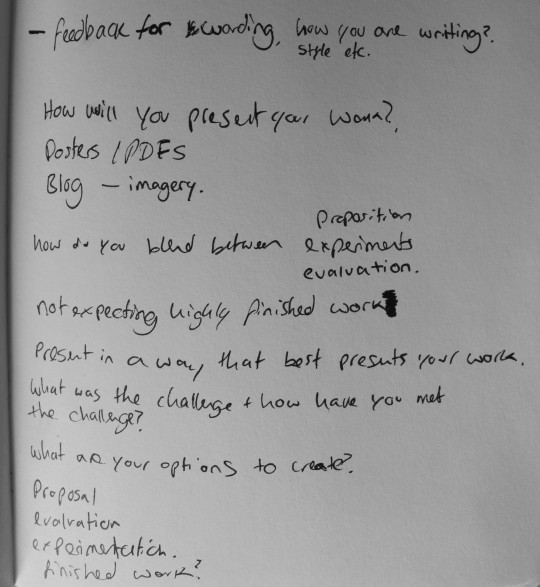 - feedback for wording, how you are writing?
style etc.
How will you present your work?
Posters / PDFS
Blog - imagery.
proposition
how do you blend between experiments
evaluation.
not expecting highly finished work
Present in a way that best presents your work.
What was the challenge + how have you met
the challenge?
What are your options to create?
Proposal
evaluation
experimentation.
finished work?